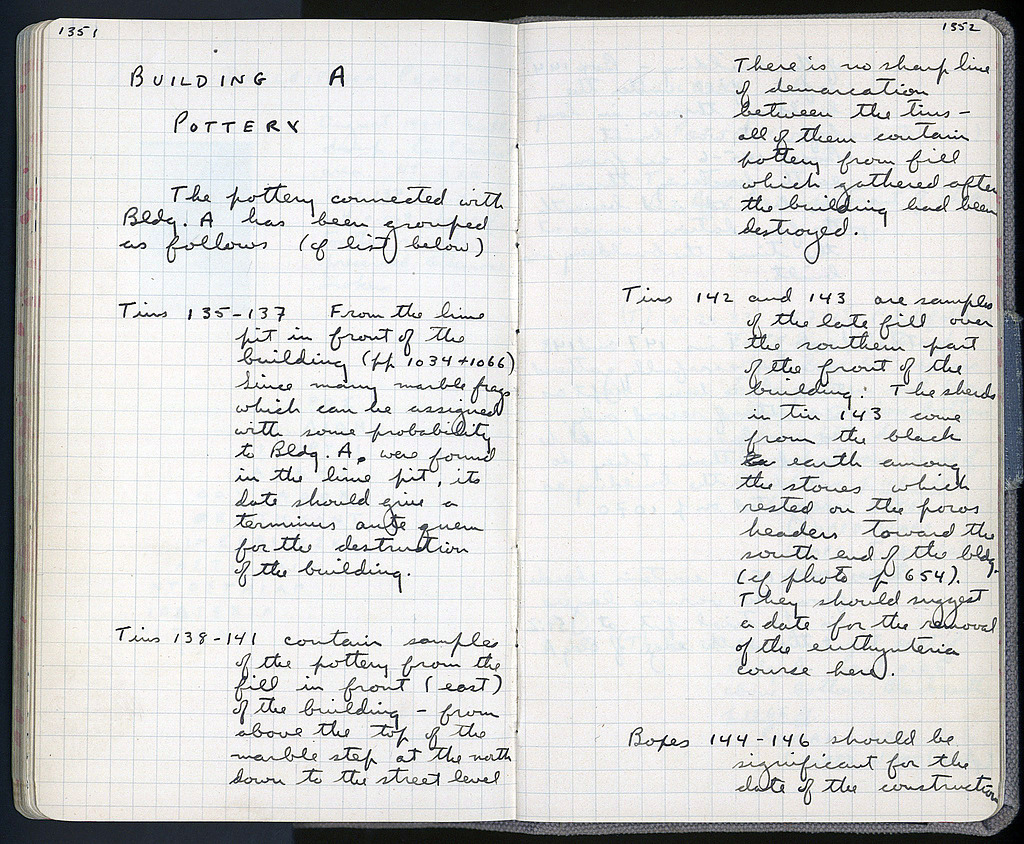 1351
BUILDING A
POTTERY
The pottery connected with
Bldg. A has been grouped
as follows (cf list below)
Tins 135-137 From the lime
pit in front of the
building (pp 1034 + 1066)
Since many marble frags
which can be assigned
with some probability
to Bldg. A, were found
in the lime pit, its
date should give a
terminus ante quem
for the destruction
of the building.
Tins 138-141 contain samples
of the pottery from the
fill in front (east)
of the building - from
above the top of the
marble step at the north
down to the street level
1352
There is no sharp line
of demarcation
between the tins -
all of them contain
pottery from fill
which gathered after
the building had been
destroyed.
Tins 142 and 143 are samples
of the late fill over
the southern part
of the front of the
building: The sherds
in tin 143 come
from the black
earth among
the stones which
rested on the poros
headers toward the
south end of the bldg.
(cf photo p 654).
They should suggest
a date for the removal
of the euthynteria
course here.
Boxes 144-146 should be
significant for the
date of the construction